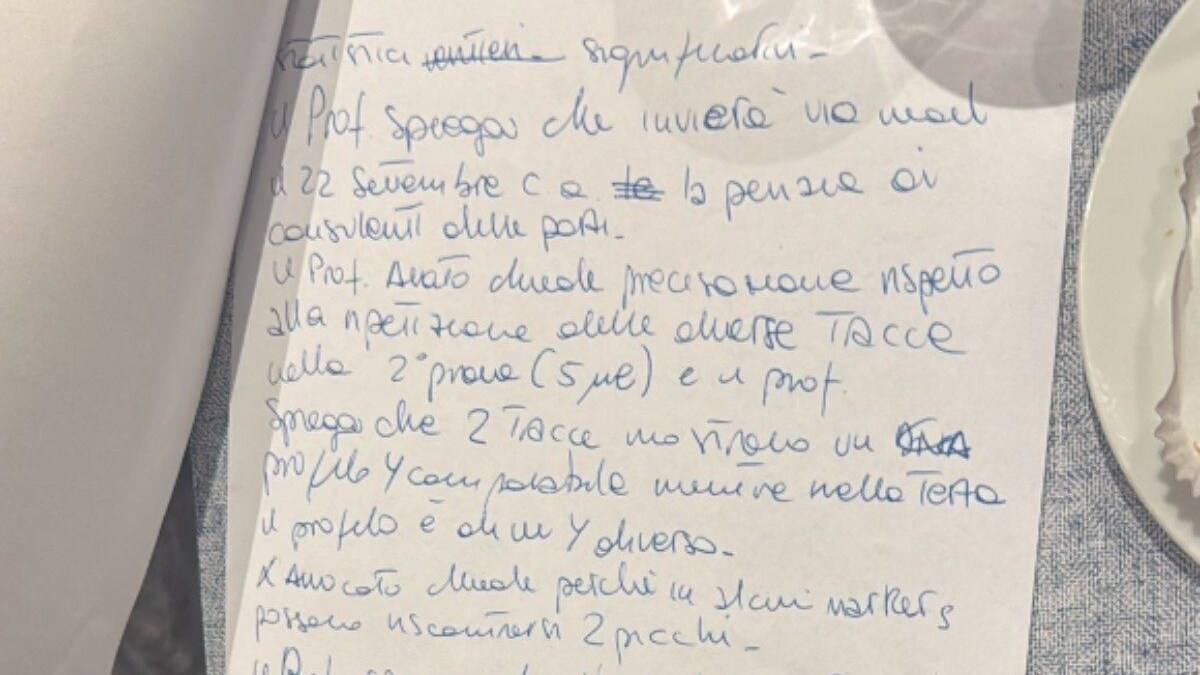 statistica significativi.
il Prof. spiega che invierà via mail
il 22 settembre c a la perizia ai
consulenti delle parti.
il Prof. chiede precisazione rispetto
alla ripetizione delle diverse TACCE
nella 2° prova (5 µl) e il prof.
spiega che 2 TACCE mostrano un
profilo Y comparabile mentre nella Terza
il profilo è di un Y diverso.
L'Avvocato chiede perché in alcuni markers
possano riscontrarsi 2 picchi.